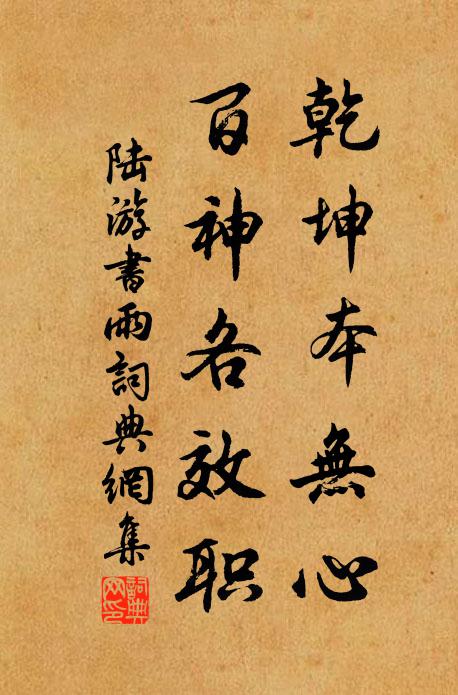 乾坤本無心
百神各效职
陆游書雨詞典網集
詞典網印